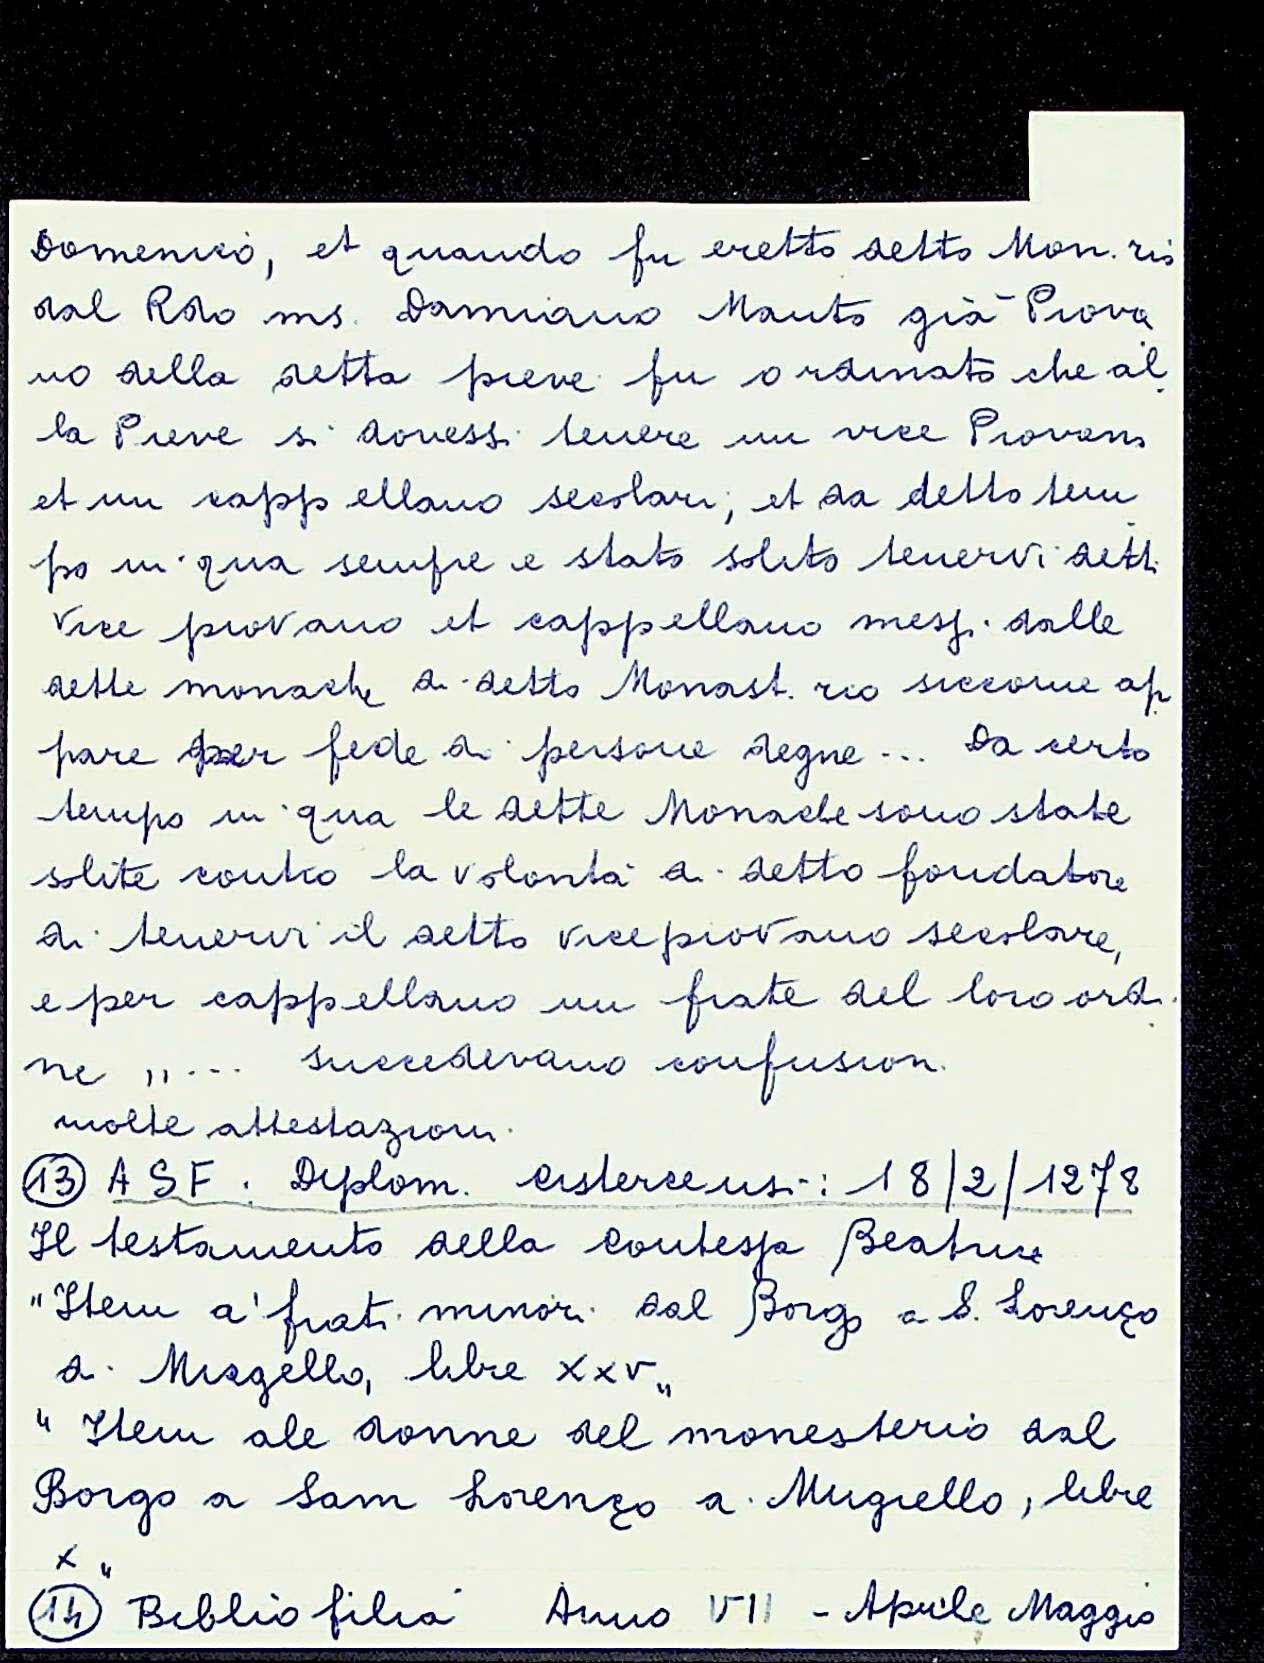 Domenico, et quando fu eretto detto Mon. rio
dal Rdo ms. Damiano Manto già Piova
no della detta pieve fu ordinato che al
la Pieve si dovessi tenere un vice Piovano
et un cappellano secolari; et da detto tem
po in qua sempre e stato solito tenervi detti
vice piovano et cappellano messi dalle
dette monache di detto Monast. rio siccome ap
pare per fede di persone degne... Da certo
tempo in qua le dette Monache sono state
solite contro la volontà di detto fondatore
di tenervi il detto vicepiovano secolare,
e per cappellano un frate del loro ordi
ne „ ... succedevano confusioni.
molte attestazioni.
(13) ASF. Diplom. Cistercensi: 18/2/1278
Il testamento della Contessa Beatrice
"Item a' frati minori dal Borgo a S. Lorenço
di Muçgello, libre XXV„
" Item ale donne del monesterio dal
Borgo a Sam Lorenço a. Mugiello, libre
X „
(14) Bibliofilia Anno VII - Aprile Maggio